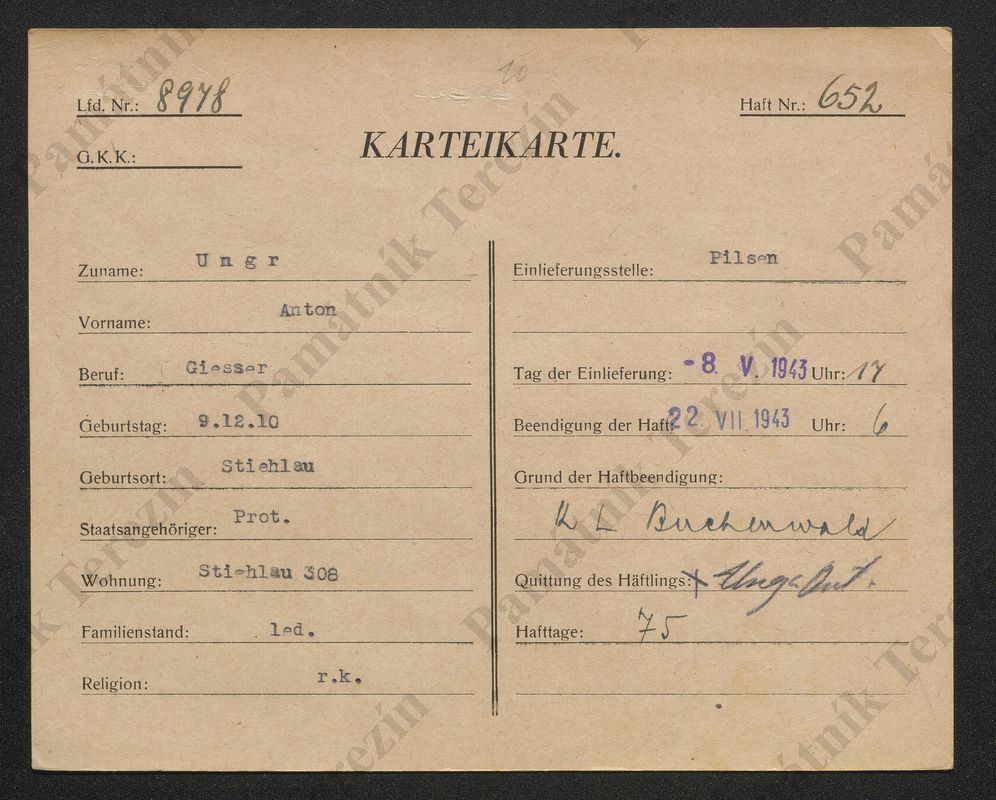 10
Lfd. Nr.: 8978
Haft Nr.: 652
G.K.K.:
KARTEIKARTE.
Zuname: Ungr
Vorname: Anton
Beruf: Giesser
Geburtstag: 9.12.10
Geburtsort: Stiehlau
Staatsangehöriger: Prot.
Wohnung: Stiehlau 308
Familienstand: led.
Religion: r.k.
Einlieferungsstelle: Pilsen
Tag der Einlieferung: -8. V. 1943 Uhr: 17
Beendigung der Haft: 22. VII 1943 Uhr: 6
Grund der Haftbeendigung:
K L Buchenwald
Quittung des Häftlings: x
Hafttage: 75
Památník Terezín